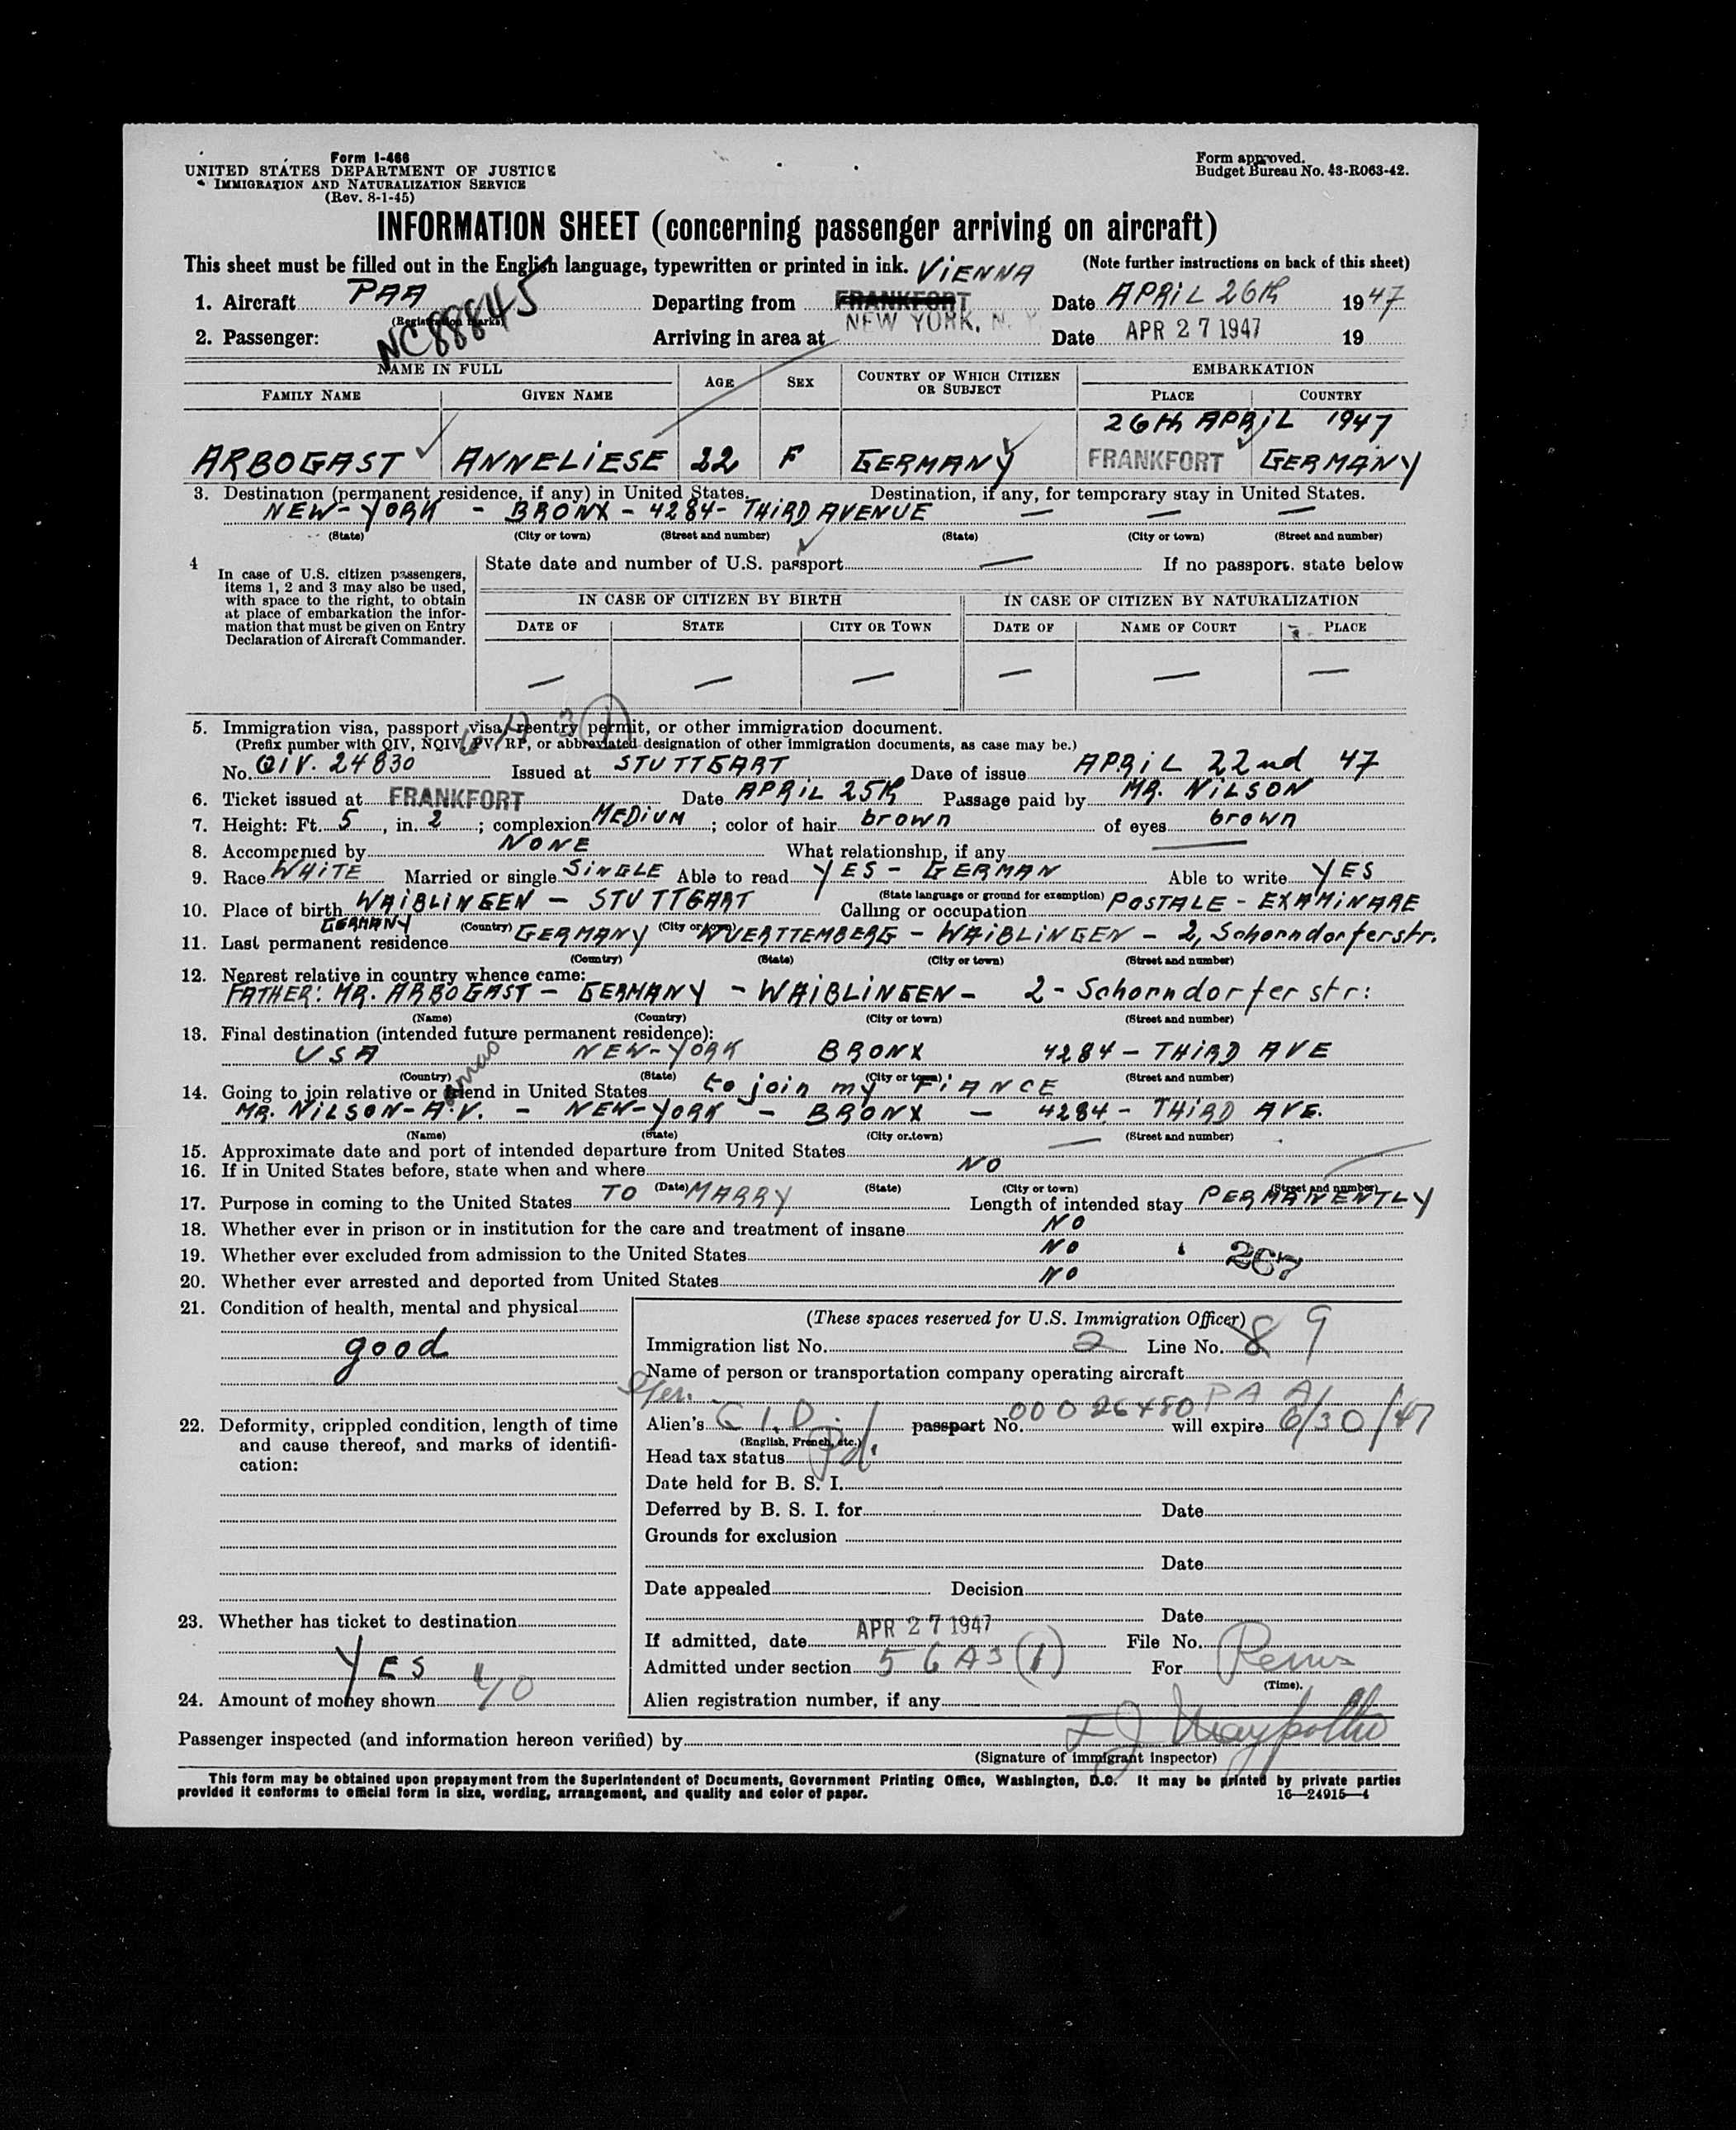 Form I-466
UNITED STATES DEPARTMENT OF JUSTICE
IMMIGRATION AND NATURALIZATION SERVICE
(Rev. 8-1-45)
Form approved.
Budget Bureau No. 43-R063-42.
INFORMATION SHEET (concerning passenger arriving on aircraft)
This sheet must be filled out in the English language, typewritten or printed in ink.
(Note further instructions on back of this sheet)
VIENNA
1. Aircraft PAA Departing from FRANKFORT Date APRIL 26th 1947
(Registration marks)
NC88845
2. Passenger: Arriving in area at NEW YORK, N. Y. Date APR 27 1947 19
NAME IN FULL AGE SEX COUNTRY OF WHICH CITIZEN OR SUBJECT EMBARKATION
FAMILY NAME GIVEN NAME PLACE COUNTRY
26th APRIL 1947
ARBOGAST ANNELIESE 22 F GERMANY FRANKFORT GERMANY
3. Destination (permanent residence, if any) in United States. Destination, if any, for temporary stay in United States.
NEW-YORK - BRONX - 4284- THIRD AVENUE — — —
(State) (City or town) (Street and number) (State) (City or town) (Street and number)
4 In case of U.S. citizen passengers,
items 1, 2 and 3 may also be used,
with space to the right, to obtain
at place of embarkation the infor-
mation that must be given on Entry
Declaration of Aircraft Commander.
State date and number of U.S. passport — If no passport. state below
IN CASE OF CITIZEN BY BIRTH IN CASE OF CITIZEN BY NATURALIZATION
DATE OF STATE CITY OR TOWN DATE OF NAME OF COURT PLACE
— — — — — —
5. Immigration visa, passport visa, reentry permit, or other immigration document.
(Prefix number with QIV, NQIV, PV, RP, or abbreviated designation of other immigration documents, as case may be.)
No. QIV. 24830 Issued at STUTTGART Date of issue APRIL 22nd 47
6. Ticket issued at FRANKFORT Date APRIL 25th Passage paid by MR. NILSON
7. Height: Ft. 5, in. 2; complexion MEDIUM; color of hair brown of eyes brown
8. Accompanied by NONE What relationship, if any —
9. Race WHITE Married or single SINGLE Able to read YES - GERMAN Able to write YES
(State language or ground for exemption)
10. Place of birth WAIBLINGEN - STUTTGART Calling or occupation POSTALE - EXAMINARE
GERMANY (Country) (City or town)
11. Last permanent residence GERMANY WUERTTEMBERG - WAIBLINGEN - 2, Schorndorferstr.
(Country) (State) (City or town) (Street and number)
12. Nearest relative in country whence came:
FATHER: MR. ARBOGAST - GERMANY - WAIBLINGEN - 2 - Schorndorferstr:
(Name) (Country) (City or town) (Street and number)
13. Final destination (intended future permanent residence):
USA NEW-YORK BRONX 4284 - THIRD AVE
(Country) (State) (City or town) (Street and number)
14. Going to join relative or friend in United States to join my FIANCE
MR. NILSON-A.V. - NEW-YORK - BRONX - 4284. - THIRD AVE.
(Name) (State) (City or town) (Street and number)
15. Approximate date and port of intended departure from United States —
16. If in United States before, state when and where NO
(Date) (State) (City or town) (Street and number)
17. Purpose in coming to the United States TO MARRY Length of intended stay PERMANENTLY
18. Whether ever in prison or in institution for the care and treatment of insane NO
19. Whether ever excluded from admission to the United States NO
267
20. Whether ever arrested and deported from United States NO
21. Condition of health, mental and physical
good
22. Deformity, crippled condition, length of time
and cause thereof, and marks of identifi-
cation:
23. Whether has ticket to destination
YES
24. Amount of money shown 40
(These spaces reserved for U.S. Immigration Officer)
Immigration list No. 2 Line No. 8 9
Name of person or transportation company operating aircraft
PAA
Alien's passport No. 00026480 will expire 6/30/47
(English, French, etc.)
Head tax status Pd.
Date held for B. S. I.
Deferred by B. S. I. for Date
Grounds for exclusion
Date
Date appealed Decision
Date
If admitted, date APR 27 1947 File No.
Admitted under section 5 6 A3 (1) For Perm
(Time).
Alien registration number, if any
Passenger inspected (and information hereon verified) by
(Signature of immigrant inspector)
This form may be obtained upon prepayment from the Superintendent of Documents, Government Printing Office, Washington, D.C. It may be printed by private parties
provided it conforms to official form in size, wording, arrangement, and quality and color of paper.
16—24915—4